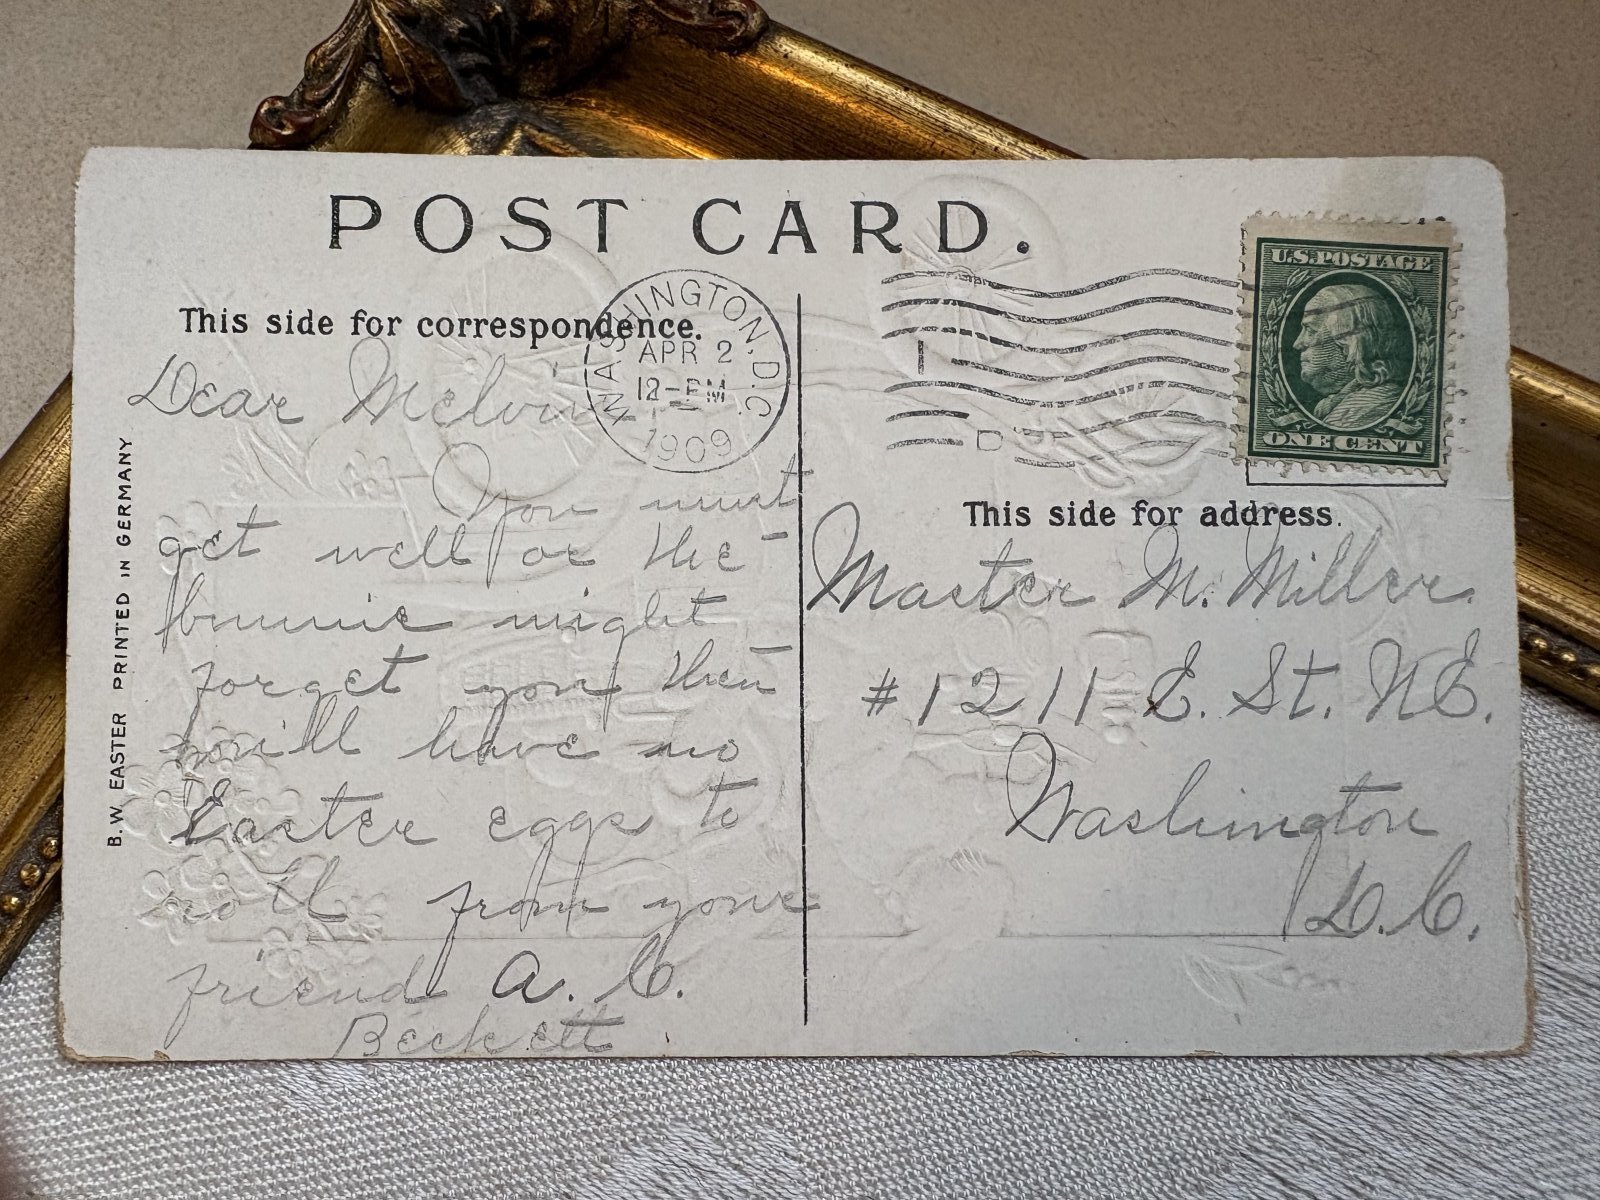 POST CARD.
This side for correspondence.
WASHINGTON, D.C.
APR 2
12-PM
1909
U.S. POSTAGE
ONE CENT
Dear Melvin
You must
get well or the
bunnie might
forget you then
you'll have no
Easter eggs to
roll from your
friend A. C.
Beckett
B.W. EASTER PRINTED IN GERMANY
This side for address.
Master M. Miller.
#1211 E. St. NE.
Washington
D.C.